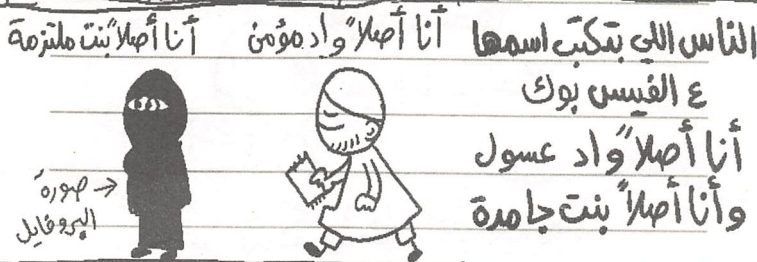 الناس اللي بتكتب اسمها
ع الفيس بوك
أنا أصلاً واد عسول
وأنا أصلاً بنت جامدة
أنا أصلاً واد مؤمن
أنا أصلاً بنت ملتزمة
صورة
البروفايل